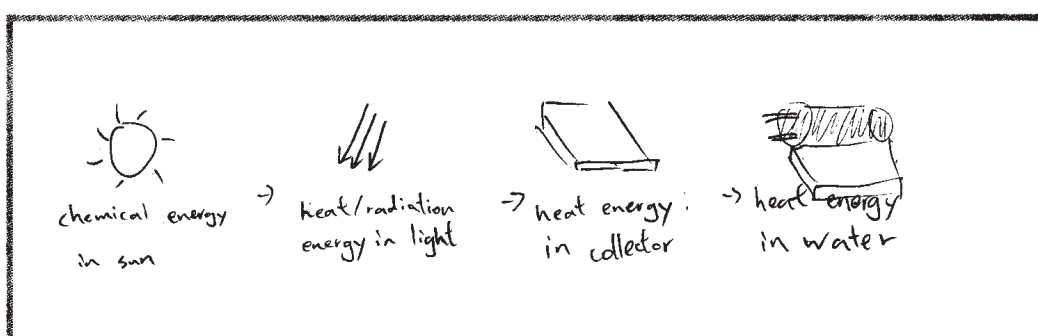 chemical energy
in sun
→ heat/radiation
energy in light
→ heat energy
in collector
→ heat energy
in water